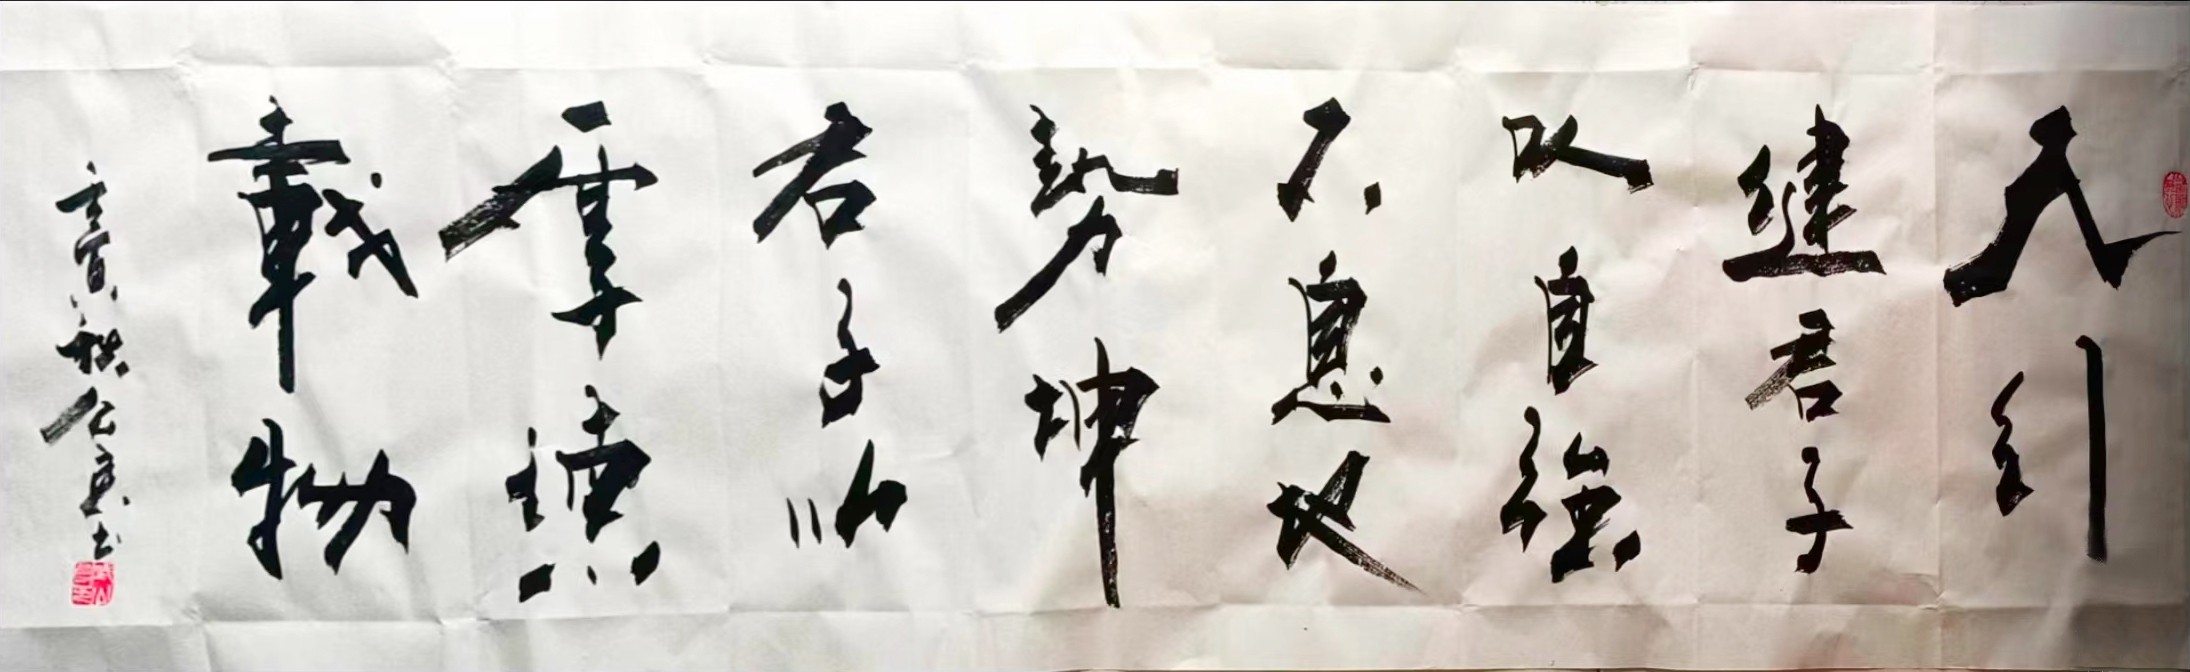 天行
健君子
以自強
不息地
勢坤
君子以
厚德
載物
壬寅秋公書